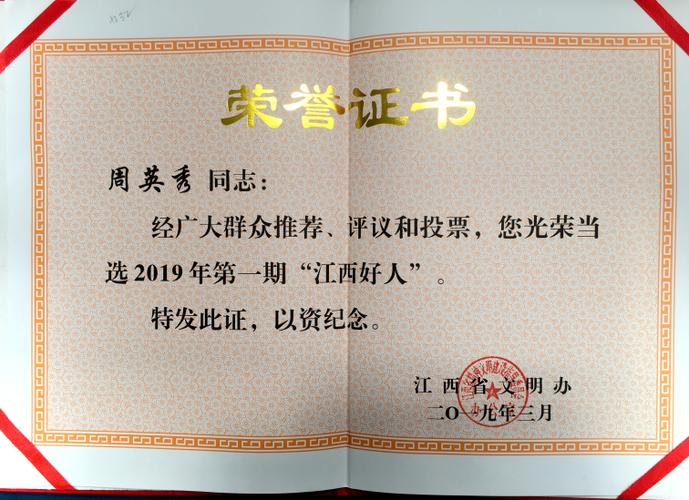 荣誉证书
周英秀 同志：
经广大群众推荐、评议和投票，您光荣当
选2019年第一期“江西好人”。
特发此证，以资纪念。
江西省文明办
二〇一九年三月